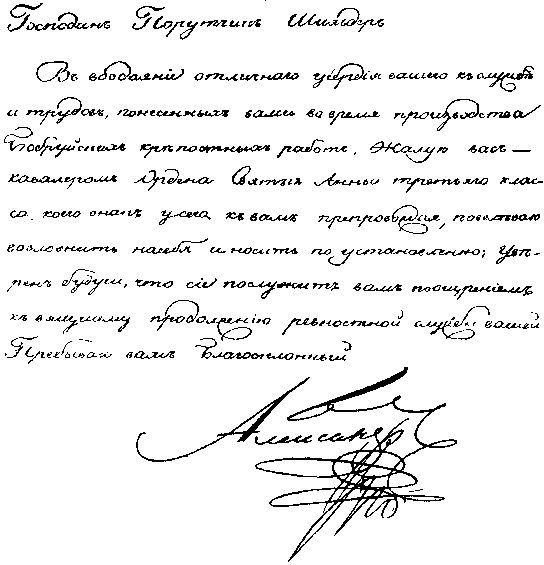 Господинъ Порутчикъ Шильдеръ
Въ воздаяніе отличнаго усердія вашего къ службѣ
и трудовъ, понесенныхъ вами во время производства
Бобруйскихъ крѣпостныхъ работъ, Жалую васъ —
кавалеромъ Ордена Святыя Анны третьяго клас-
са, коего знакъ у сего къ вамъ препровождая, повелѣваю
возложить на себя и носить по установленію; Увѣ-
ренъ будучи, что сіе послужитъ вамъ поощреніемъ
къ вящшему продолженію ревностной службы вашей
Пребываю вамъ Благосклонный
Александръ